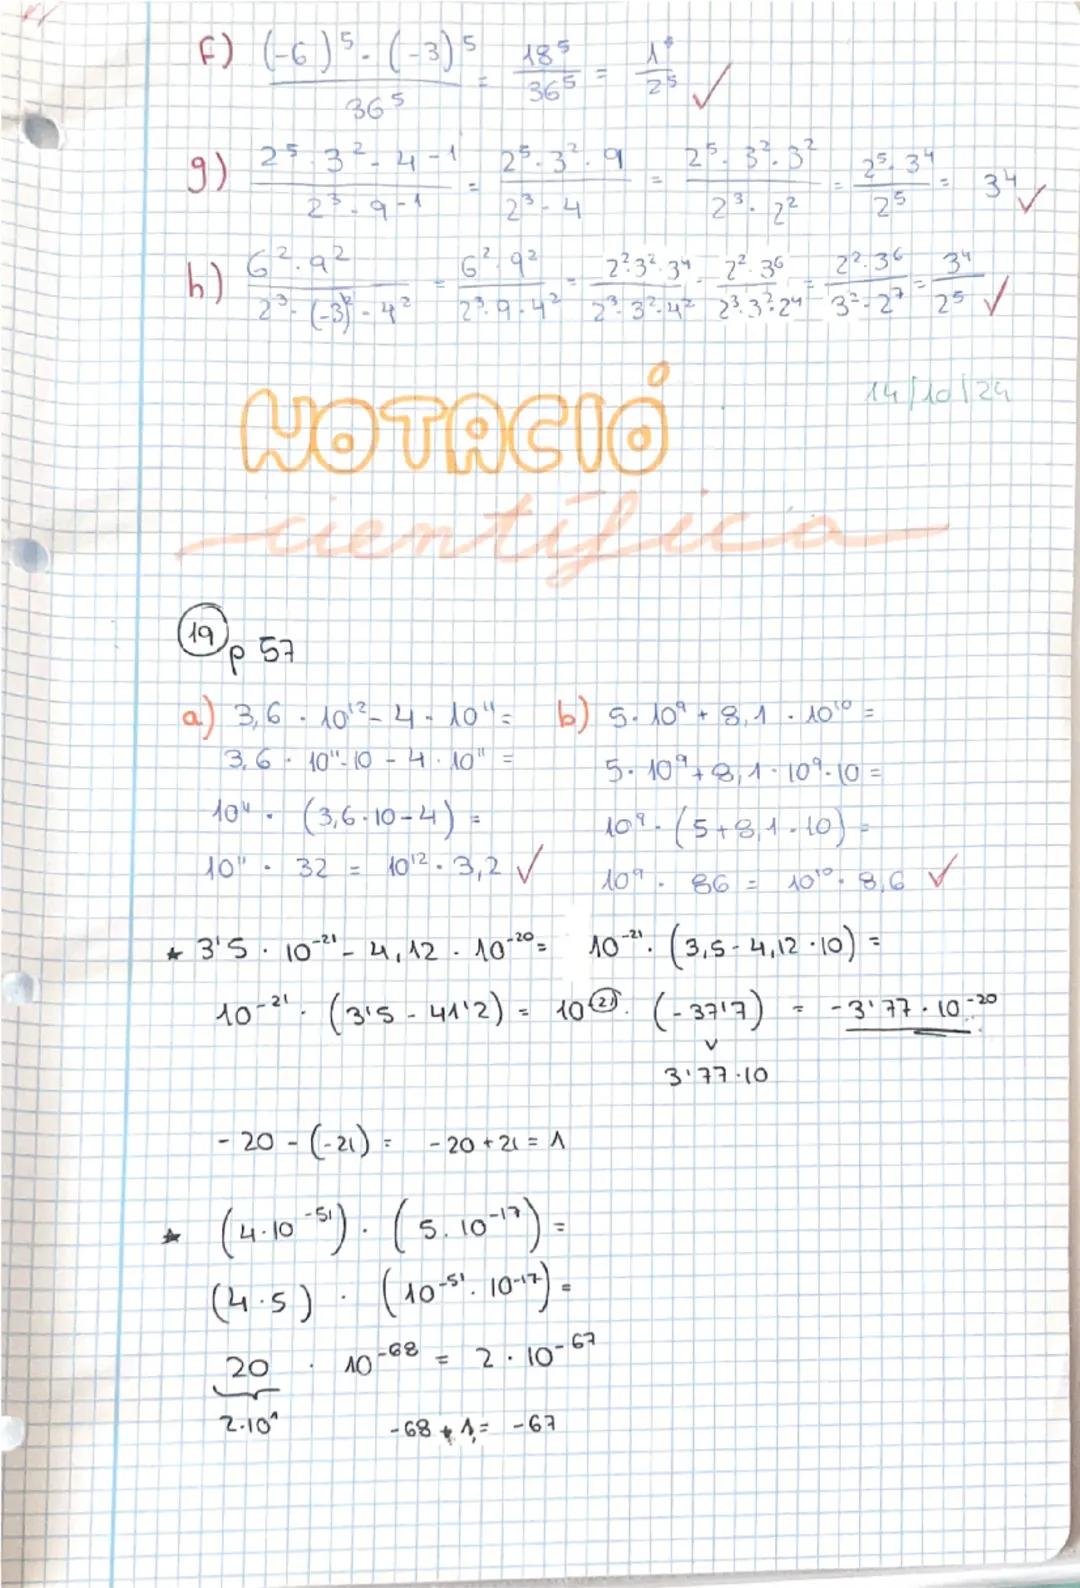 f) (-6)⁵ · (-3)⁵ / 36⁵ = 18⁵ / 36⁵ = 1⁵ / 2⁵ ✓
g) 2⁵ · 3² · 4⁻¹ / 2³ · 9⁻¹ = 2⁵ · 3² · 9 / 2³ · 4 = 2⁵ · 3² · 3² / 2³ · 2² = 2⁵ · 3⁴ / 2⁵ = 3⁴ ✓
h) 6² · 9² / 2³ · (-3)² · 4² = 6² · 9² / 2³ · 9 · 4² = 2² · 3² · 3⁴ / 2³ · 3² · 4² = 2² · 3⁶ / 2³ · 3² · 2⁴ = 2² · 3⁶ / 3² · 2⁷ = 3⁴ / 2⁵ ✓
14/10/24
NOTACIÓ
científica
19 p 57
a) 3,6 · 10¹² - 4 · 10¹¹ =
3,6 · 10¹¹ · 10 - 4 · 10¹¹ =
10¹¹ · (3,6 · 10 - 4) =
10¹¹ · 32 = 10¹² · 3,2 ✓
b) 5 · 10⁹ + 8,1 · 10¹⁰ =
5 · 10⁹ + 8,1 · 10⁹ · 10 =
10⁹ · (5 + 8,1 · 10) =
10⁹ · 86 = 10¹⁰ · 8,6 ✓
* 3'5 · 10⁻²¹ - 4,12 · 10⁻²⁰ = 10⁻²¹ · (3,5 - 4,12 · 10) =
10⁻²¹ · (3'5 - 41'2) = 10⁻²¹ · (-37'7) = -3'77 · 10⁻²⁰
3'77 · 10
-20 - (-21) = -20 + 21 = 1
* (4 · 10⁻⁵¹) · (5 · 10⁻¹⁷) =
(4 · 5) · (10⁻⁵¹ · 10⁻¹⁷) =
20 · 10⁻⁶⁸ = 2 · 10⁻⁶⁷
2 · 10¹ -68 + 1 = -67